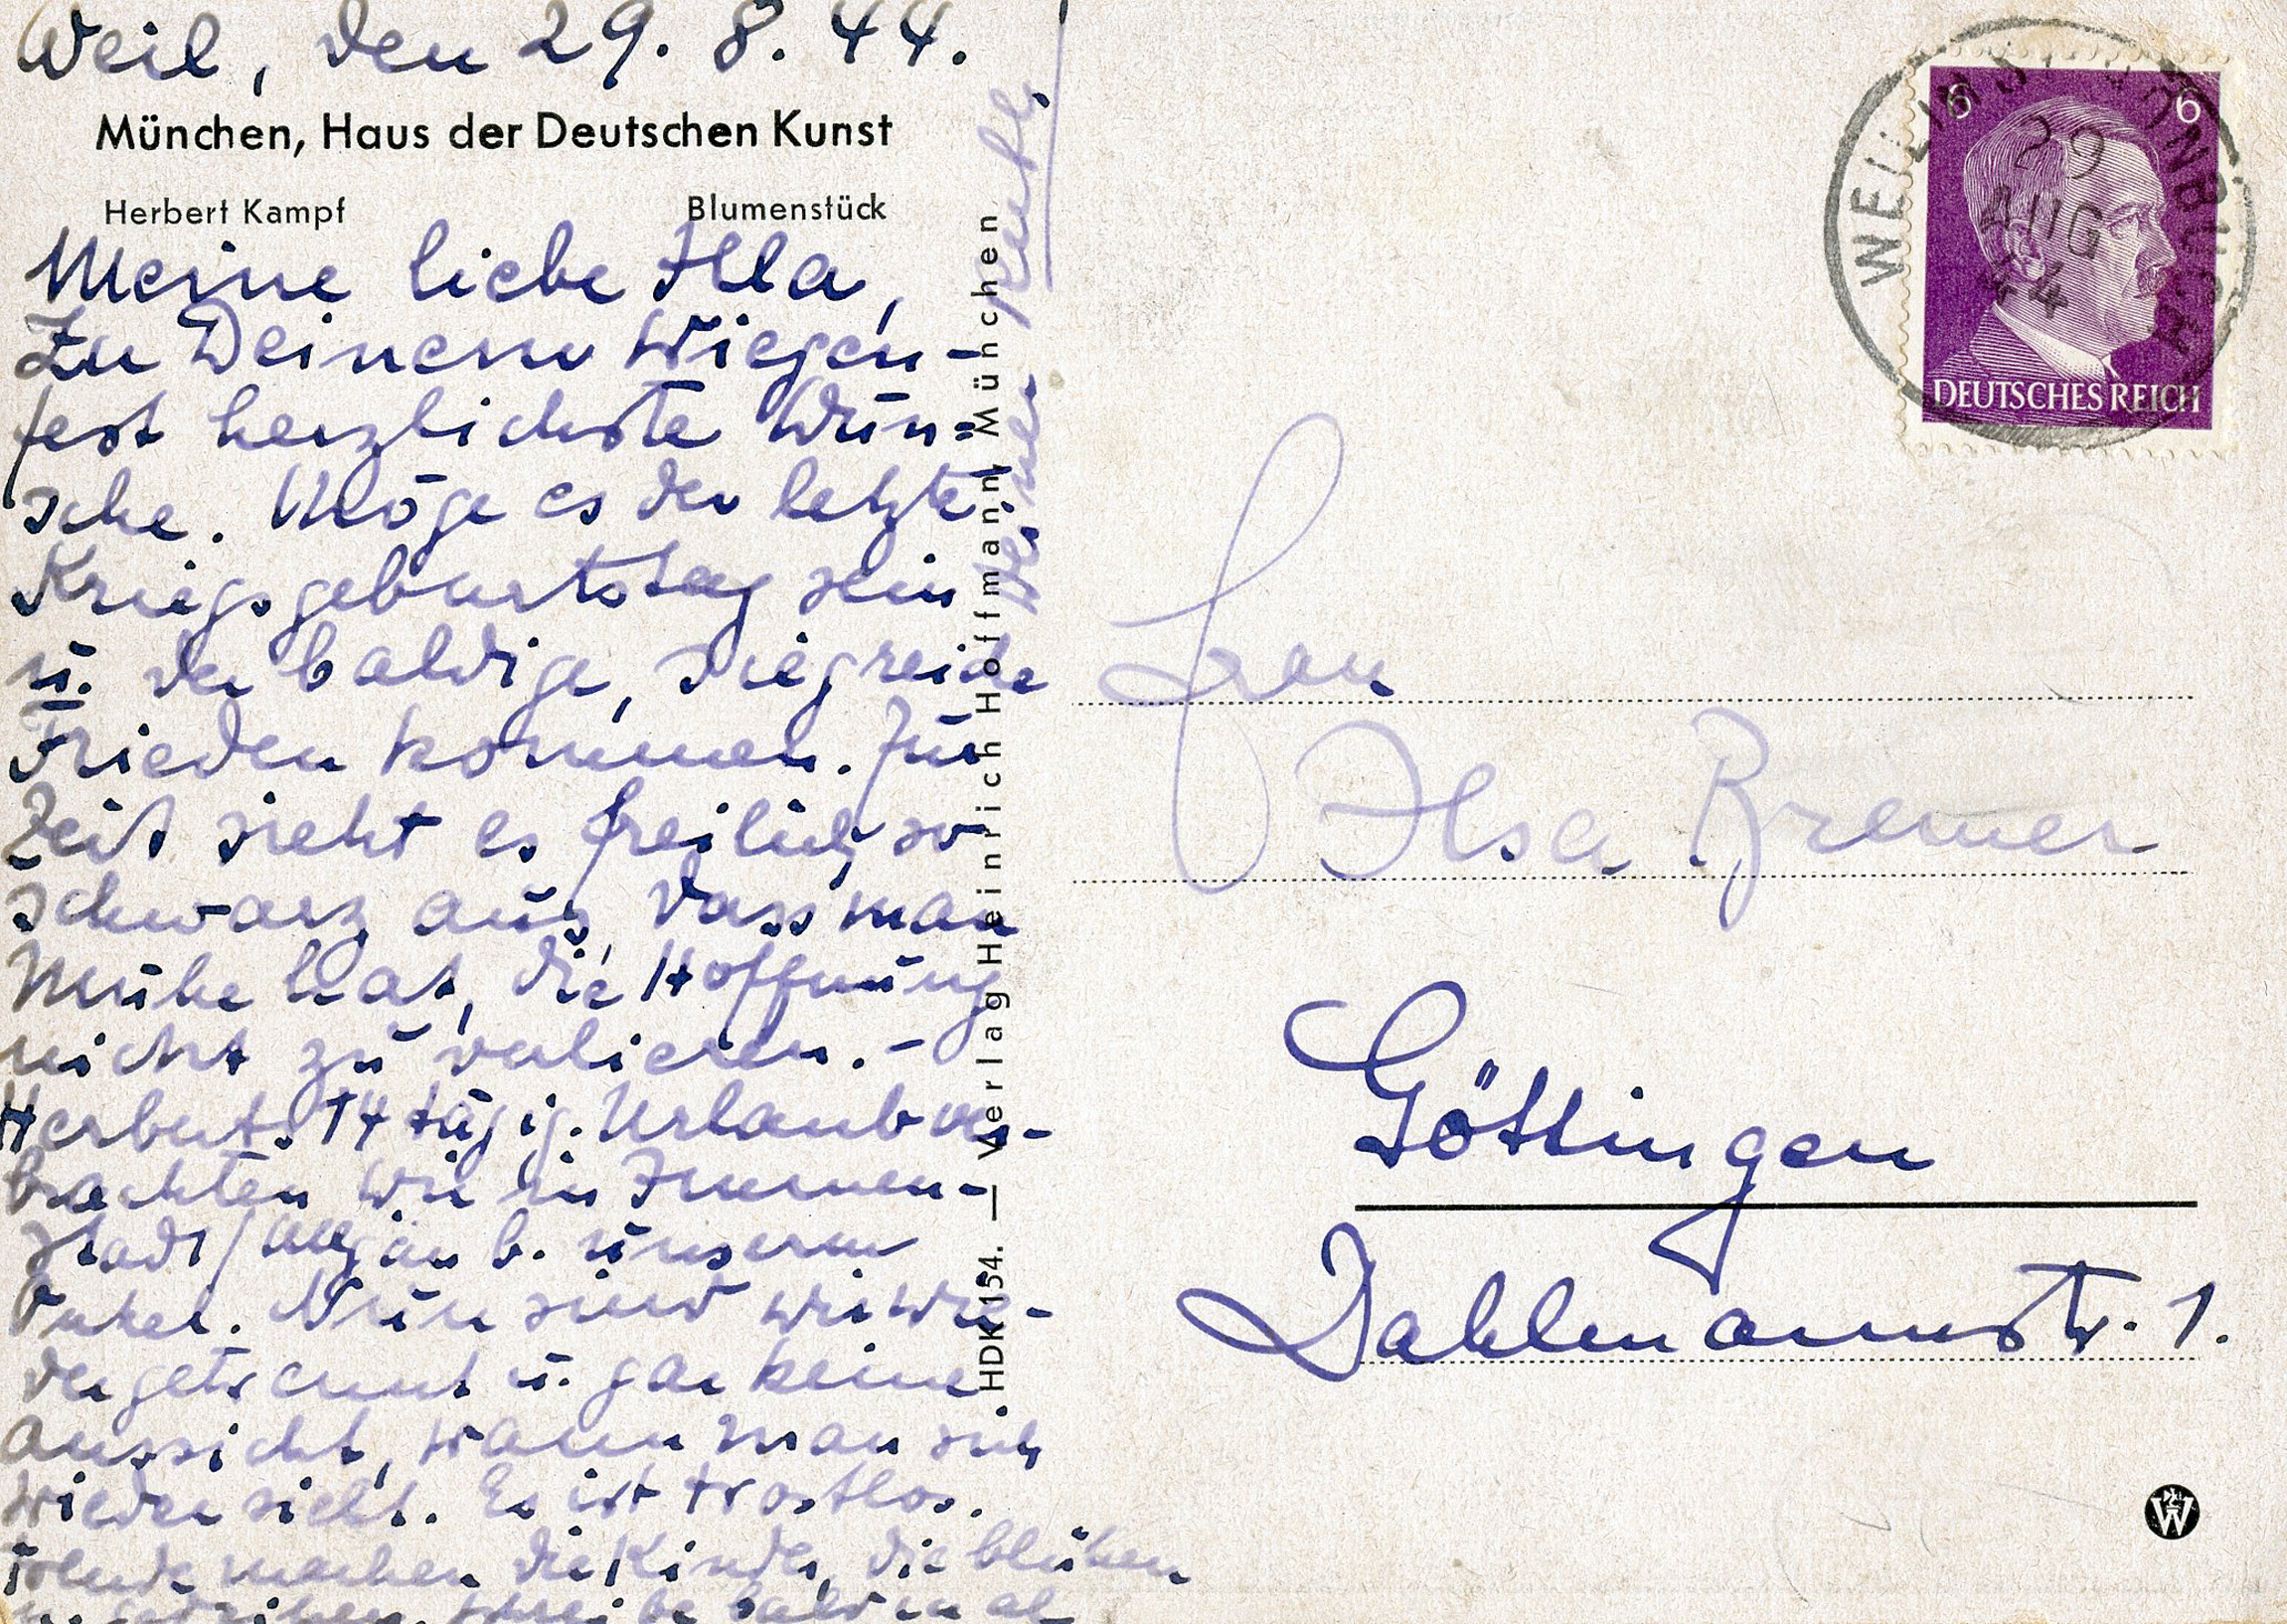 Weil, den 29. 8. 44.
München, Haus der Deutschen Kunst
Herbert Kampf Blumenstück
Meine liebe Illa,
Zu Deinem Wiegen-
fest herzlichste Wün-
sche. Möge es der letzte
Kriegsgeburtstag sein
u. der baldige, siegreiche
Frieden kommen. Zur
Zeit sieht es freilich so
schwarz aus, dass man
Mühe hat, die Hoffnung
nicht zu verlieren. -
Herberts 14 tägig. Urlaub ver-
brachten wir in Immen-
stadt / Allgäu b. unserem
Onkel. Nun sind wir wie-
der getrennt u. gar keine
Aussicht, wann man sich
wieder sieht. Es ist trostlos.
Freude machen die Kinder, die blühen
schreibe bald
Deine
HDK 154. — Verlag Heinrich Hoffmann, München
WEIL IM SCHÖNBUCH
29
AUG
44
6 6
DEUTSCHES REICH
Frau
Ilsa Bremer
Göttingen
Dahlmannstr. 1.
W